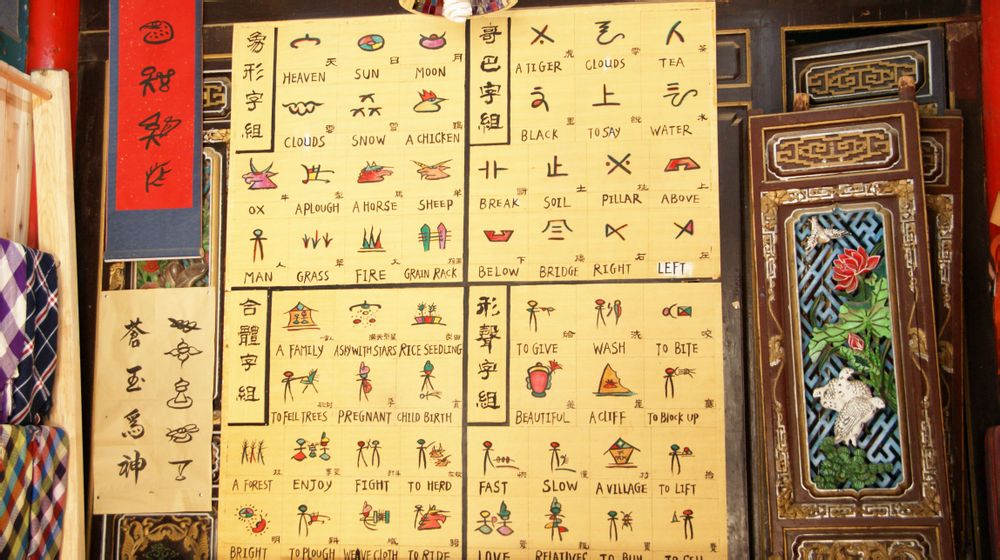 象形字組
天 日 月
HEAVEN SUN MOON
CLOUDS SNOW A CHICKEN
牛 羊
OX A PLOUGH A HORSE SHEEP
人 草
MAN GRASS FIRE GRAIN RACK
哥巴字組
虎 茶
A TIGER CLOUDS TEA
水
BLACK TO SAY WATER
土 上
BREAK SOIL PILLAR ABOVE
下 左
BELOW BRIDGE RIGHT LEFT
合體字組
A FAMILY A SKY WITH STARS RICE SEEDLING
TO FELL TREES PREGNANT CHILD BIRTH
A FOREST ENJOY FIGHT TO HERD
明
BRIGHT TO PLOUGH WEAVE CLOTH TO RIDE
形聲字組
給 洗 咬
TO GIVE WASH TO BITE
BEAUTIFUL A CLIFF TO BLOCK UP
FAST SLOW A VILLAGE TO LIFT
LOVE RELATIVES TO BUY TO SELL
玉
為
神